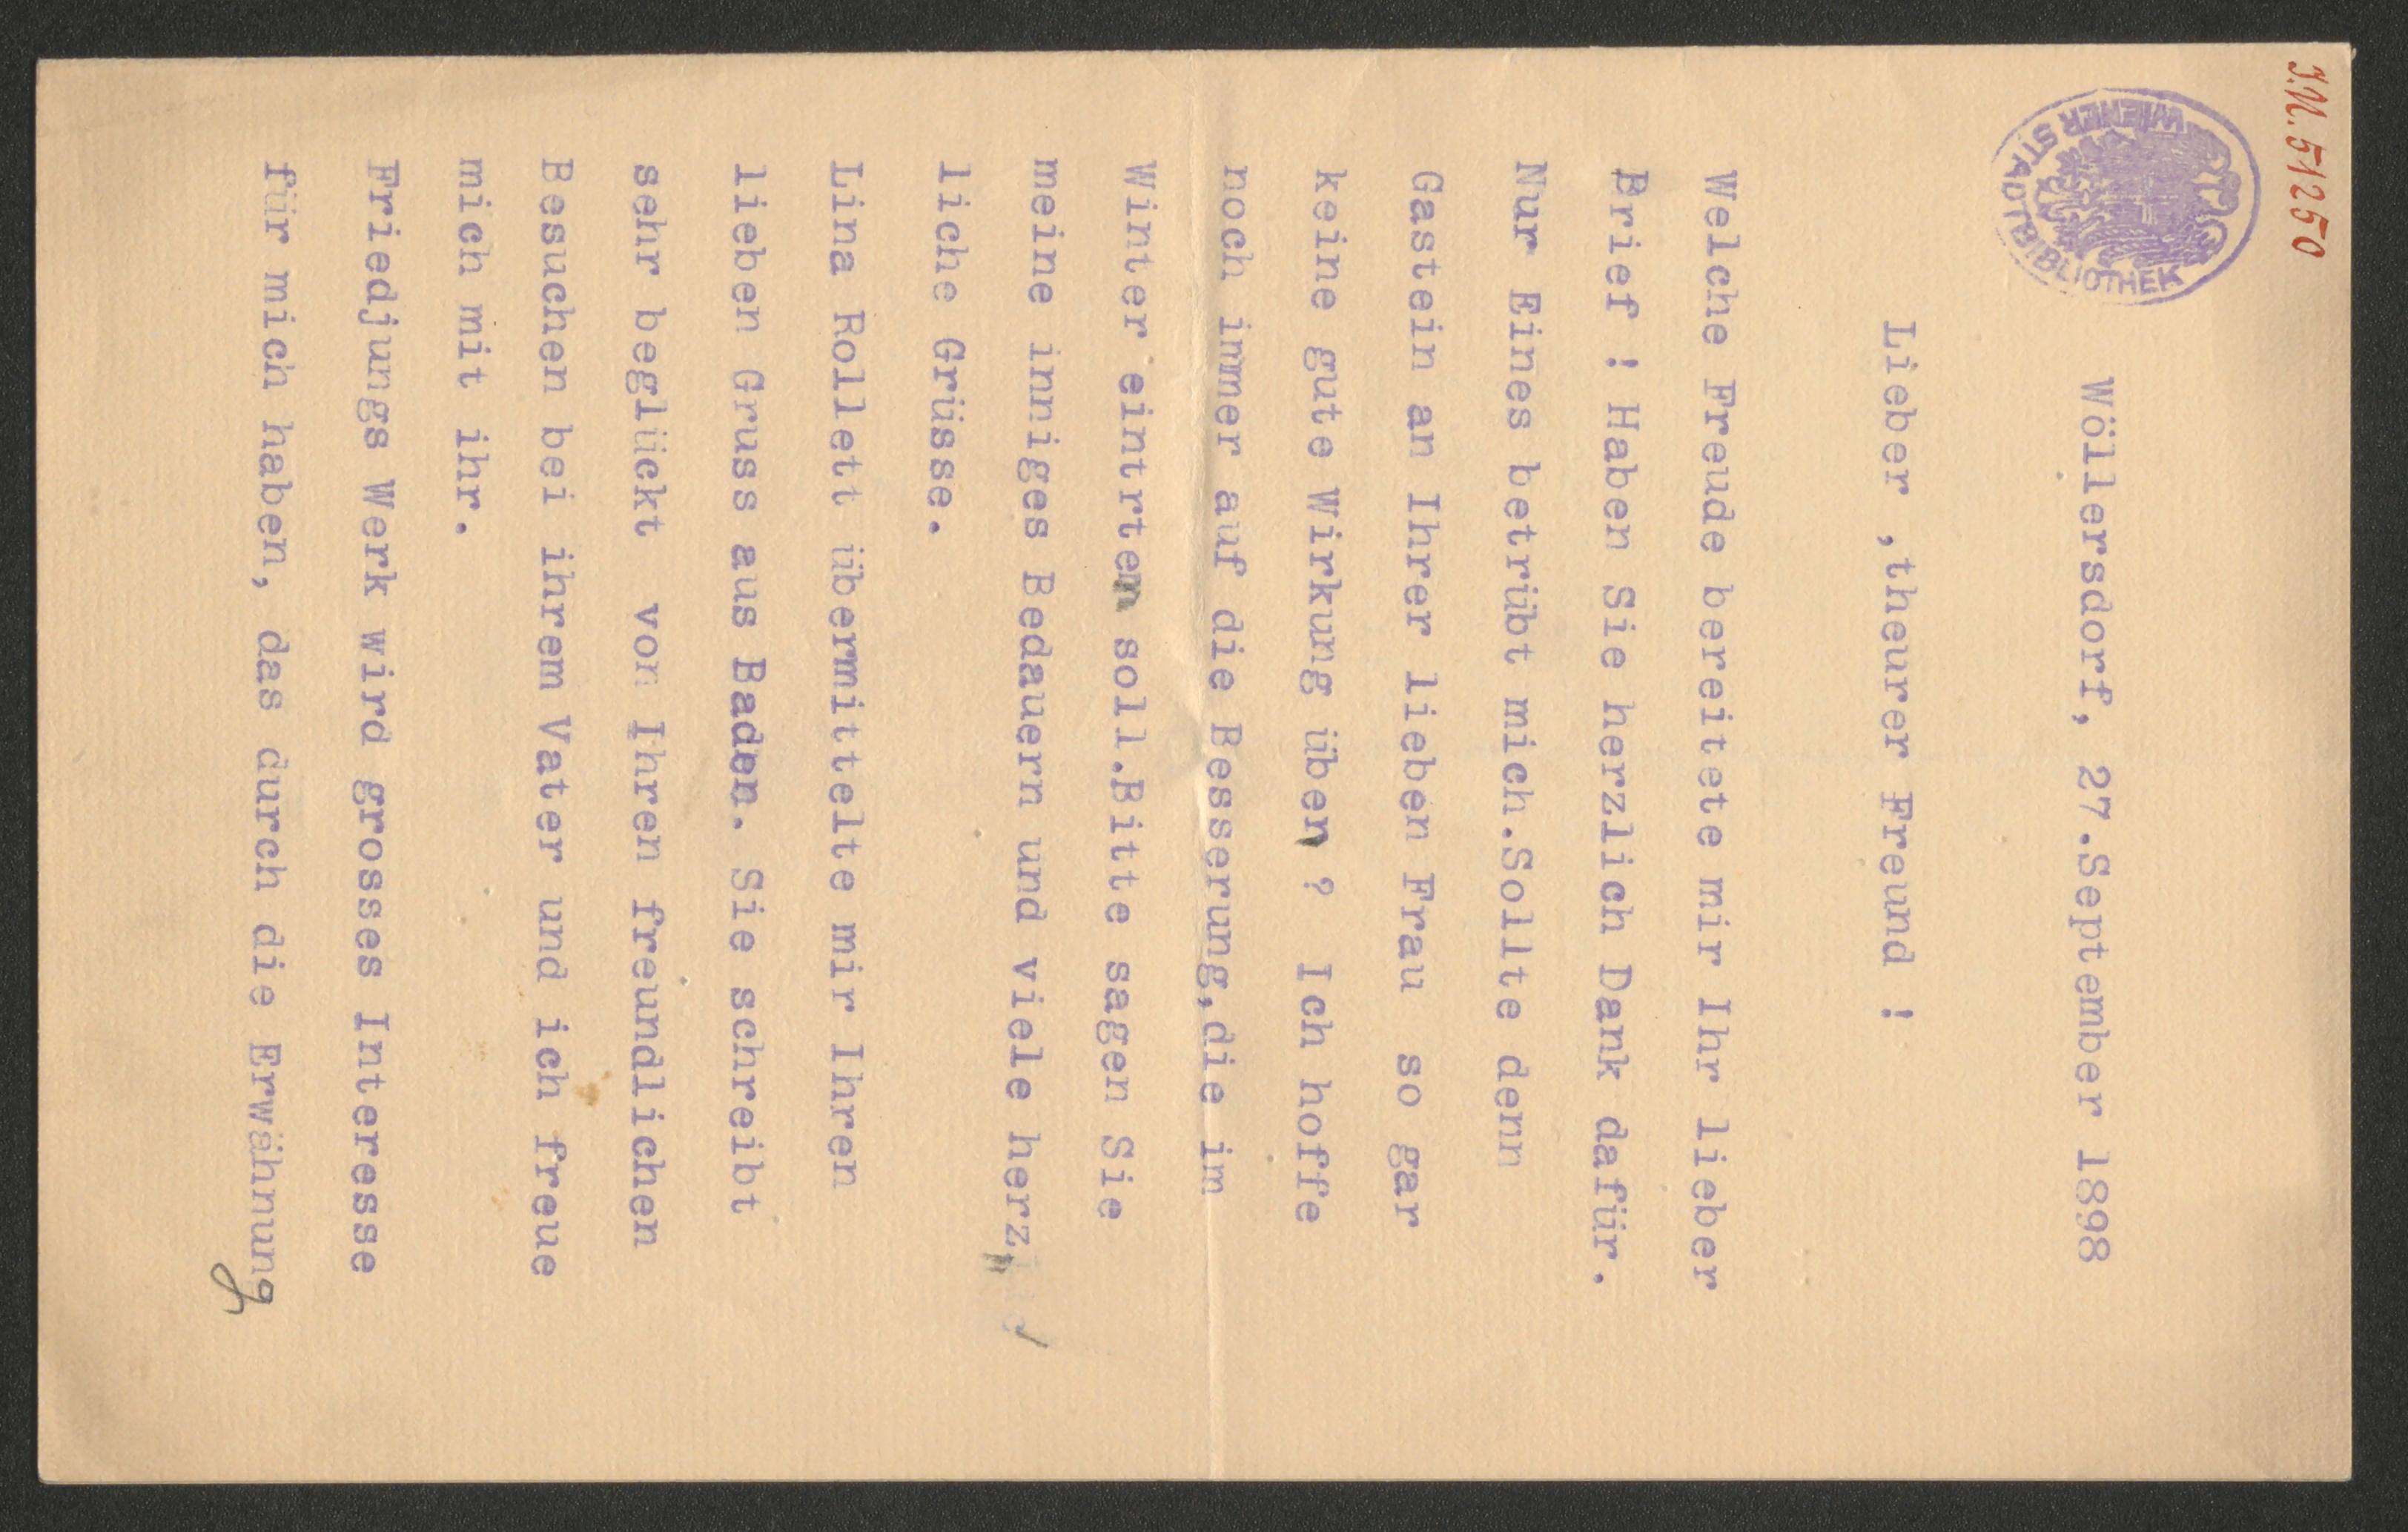 J.N. 51250
WIENER STADTBIBLIOTHEK
Wöllersdorf, 27.September 1898
Lieber ,theurer Freund !
Welche Freude bereitete mir Ihr lieber
Brief ! Haben Sie herzlich Dank dafür.
Nur Eines betrübt mich.Sollte denn
Gastein an Ihrer lieben Frau so gar
keine gute Wirkung üben ? Ich hoffe
noch immer auf die Besserung,die im
Winter eintrten soll.Bitte sagen Sie
meine inniges Bedauern und viele herz„
liche Grüsse.
Lina Rollett übermittelte mir Ihren
lieben Gruss aus Baden. Sie schreibt
sehr beglückt von Ihren freundlichen
Besuchen bei ihrem Vater und ich freue
mich mit ihr.
Friedjungs Werk wird grosses Interesse
für mich haben, das durch die Erwähnung